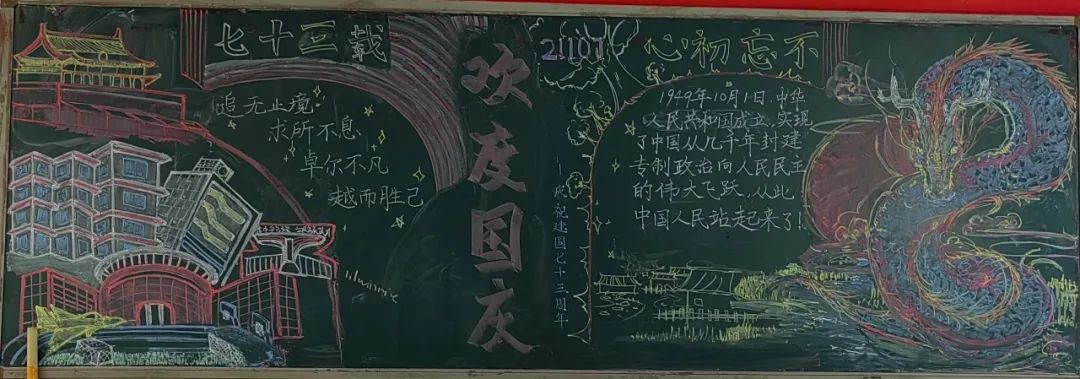 七十三载
追无止境
求所不息
卓尔不凡
越而胜己
欢度国庆
21107
——庆祝建国七十三周年
不忘初心
1949年10月1日,中华
人民共和国成立,实现
了中国从几千年封建
专制政治向人民民主
的伟大飞跃,从此
中国人民站起来了!